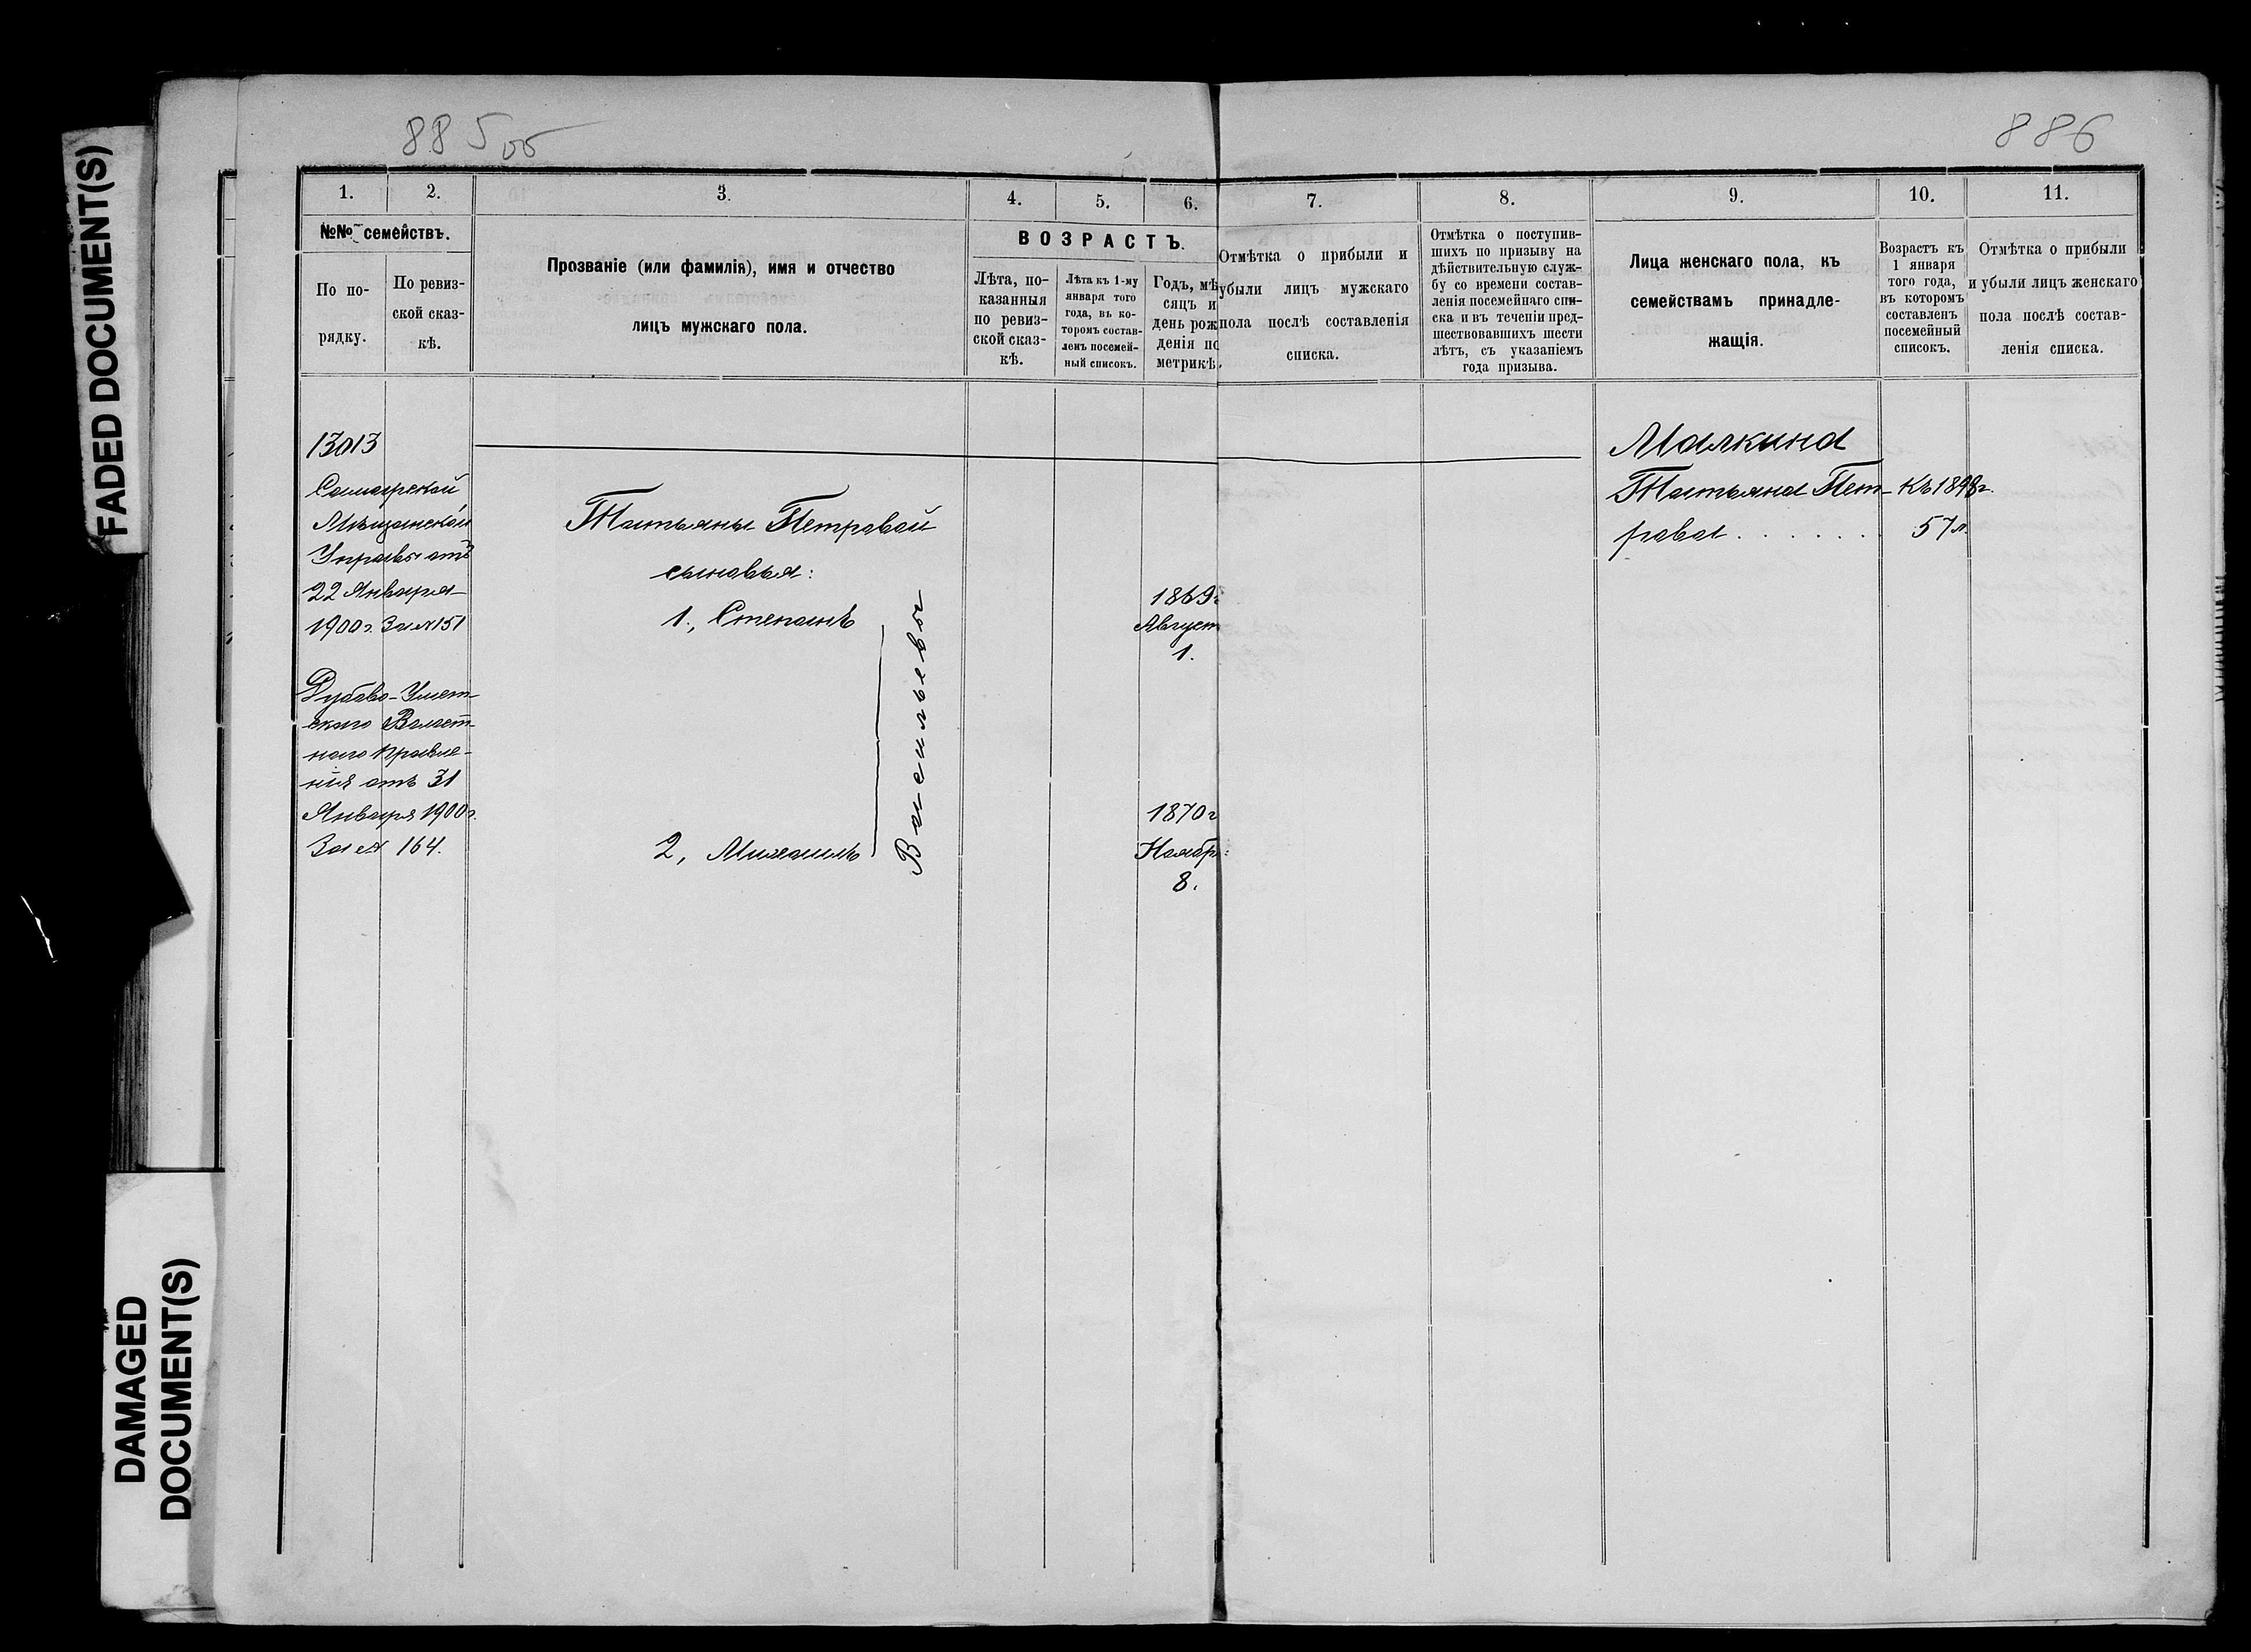 FADED DOCUMENT(S)
DAMAGED
DOCUMENT(S)
885 об
886
1.
2.
3.
4.
5.
6.
7.
8.
9.
10.
11.
№№ семействъ.
По по-
рядку.
По ревиз-
ской сказ-
кѣ.
Прозваніе (или фамилія), имя и отчество
лицъ мужскаго пола.
ВОЗРАСТЪ.
Лѣта, по-
казанныя
по ревиз-
ской сказ-
кѣ.
Лѣта къ 1-му
января того
года, въ ко-
торомъ состав-
ленъ посемей-
ный списокъ.
Годъ, мѣ
сяцъ и
день рож
денія по
метрикѣ.
Отмѣтка о прибыли и
убыли лицъ мужскаго
пола послѣ составленія
списка.
Отмѣтка о поступив-
шихъ по призыву на
дѣйствительную служ-
бу со времени состав-
ленія посемейнаго спи-
ска и въ теченіи пред-
шествовавшихъ шести
лѣтъ, съ указаніемъ
года призыва.
Лица женскаго пола, къ
семействамъ принадле-
жащія.
Возрастъ къ
1 января
того года,
въ которомъ
составленъ
посемейный
списокъ.
Отмѣтка о прибыли
и убыли лицъ женскаго
пола послѣ состав-
ленія списка.
13013
Самарской
Мѣщанской
Управы отъ
22 Января
1900 г. За № 151
Дубово-Умет-
скаго Волост-
ного Правле-
нія отъ 31
Января 1900 г.
За № 164.
Татьяны Петровой
сыновья:
1., Степанъ
2, Михаилъ
Васильевы
1869 г
Август
1.
1870 г
Ноябр:
8.
Малкина
Татьяна Пет-
рова . . . . . . .
Къ 1898 г.
57 л.